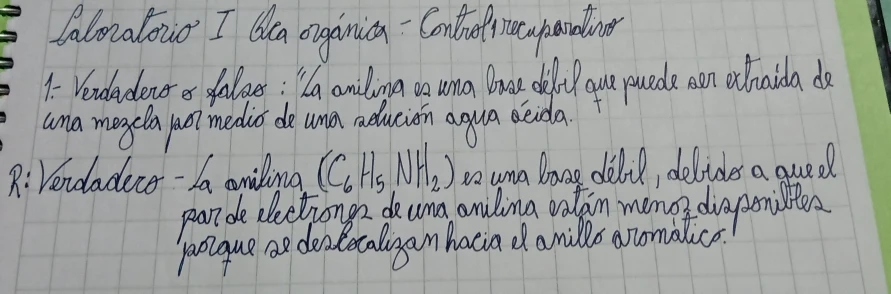 Laboratorio I Qca orgánica - Control recuperativo
1.- Verdadero o falso: "La anilina es una base débil que puede ser extraída de
una mezcla por medio de una solución agua ácida.
R: Verdadero - La anilina (C₆H₅NH₂) es una base débil, debido a que el
par de electrones de una anilina están menos disponibles
porque se deslocalizan hacia el anillo aromático.